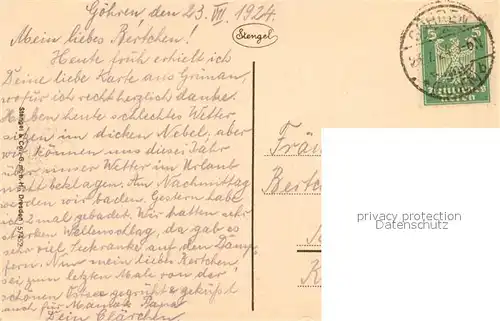 Göhren den 23. VII. 1924.
Mein liebes Bertchen!
Heute früh erhielt ich
Deine liebe Karte aus
wofür ich recht herzlich danke.
Haben heute schlechtes Wetter,
sitzen im dicken Nebel, aber
wir können uns dieses Jahr
über unser Wetter im Urlaub
nicht beklagen. Am Nachmittag
werden wir baden. Gestern habe
ich 2 mal gebadet. Wir hatten sehr
starken Wellenschlag, da gab es
sehr viel Seekranke auf den Damp-
fern. Nun mein liebes Bertchen,
sei zum letzten Male von der
schönen Ostsee gegrüßt & geküßt
auch für Mama & Papa
Dein Clärchen
Stengel
Stengel & Co., G.m.b.H., Dresden
5 5
GÖHREN
Fräu
privacy protection
Datenschutz